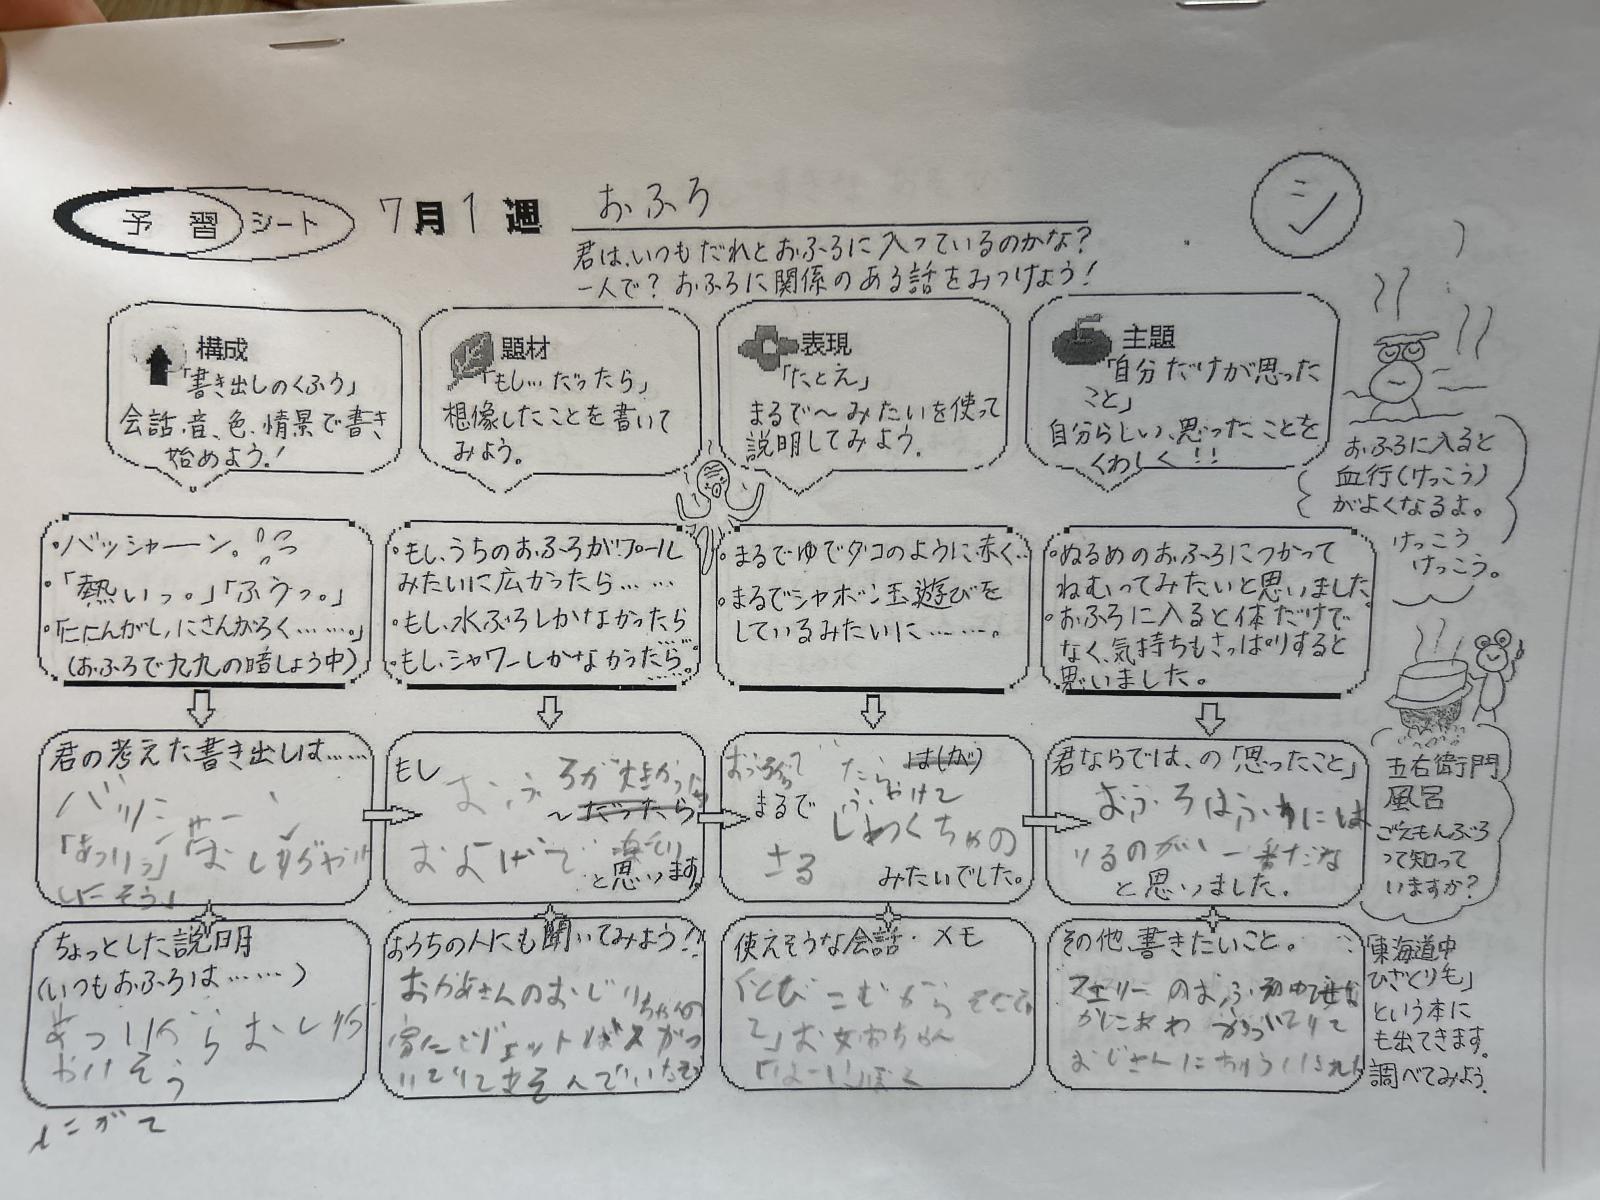 予習シート 7月1週 おふろ
シ
君は、いつもだれとおふろに入っているのかな?
一人で?おふろに関係のある話をみつけよう!
構成
「書き出しのくふう」
会話、音、色、情景で書き
始めよう!
題材
「もし…だったら」
想像したことを書いて
みよう。
表現
「たとえ」
まるで〜みたいを使って
説明してみよう。
主題
「自分だけが思った
こと」
自分らしい、思ったことを
くわしく!!
おふろに入ると
血行(けっこう)
がよくなるよ。
けっこう
けっこう。
・バッシャーン。
・「熱いっ。」「ふうっ。」
・「ににんがし、にさんがろく……。」
(おふろで九九の暗しょう中)
・もし、うちのおふろがプール
みたいに広かったら……
・もし、水ぶろしかなかったら
・もし、シャワーしかなかったら……。
・まるでゆでダコのように赤く…
・まるでシャボン玉遊びを
しているみたいに……。
・ぬるめのおふろにつかって
ねむってみたいと思いました
・おふろに入ると体だけで
なく、気持ちもさっぱりすると
思いました。
君の考えた書き出しは……
もし
おふろが大きかったら
〜だったら
およげて
と思います。
まるで
はし(が)
ふやけて
しわくちゃの
さる
みたいでした。
君ならでは、の「思ったこと」
おふろは
るのがい一番だな
と思いました。
五右衛門
風呂
ごえもんぶろ
って知って
いますか?
ちょっとした説明
(いつもおふろは……)
あついから
おうちの人にも聞いてみよう!!
おかあさんのおじいちゃんの
家にジェットバスがつ
いていてあそんでいた
使えそうな会話・メモ
「とびこむから
て」お女おちゃん
「はーい」ぼく
その他、書きたいこと。
フェリーのおふろ
おじさんに
「東海道中
ひざくり毛」
という本に
も出てきます。
調べてみよう。
にがて